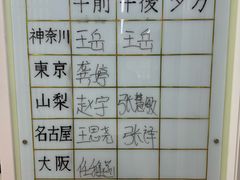 午前 午後 夕方
神奈川 王岳 王岳
東京 龚婷
山梨 赵宇 张慧敏
名古屋 王思尧 张祥
大阪